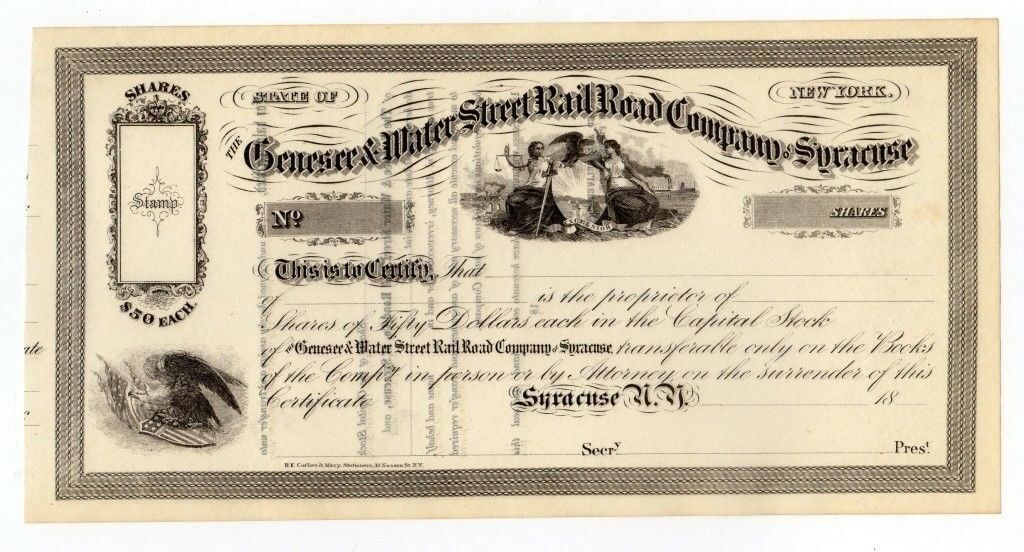 SHARES
Stamp
$50 EACH.
STATE OF
NEW YORK.
THE Genesee & Water Street Rail Road Company of Syracuse
No
SHARES
This is to Certify, That
of is the proprietor of
Shares of Fifty Dollars each in the Capital Stock
of the Genesee & Water Street Rail Road Company of Syracuse, transferable only on the Books
of the Compy. in person or by Attorney on the surrender of this
Certificate Syracuse N.Y. 18
Secry. Prest.